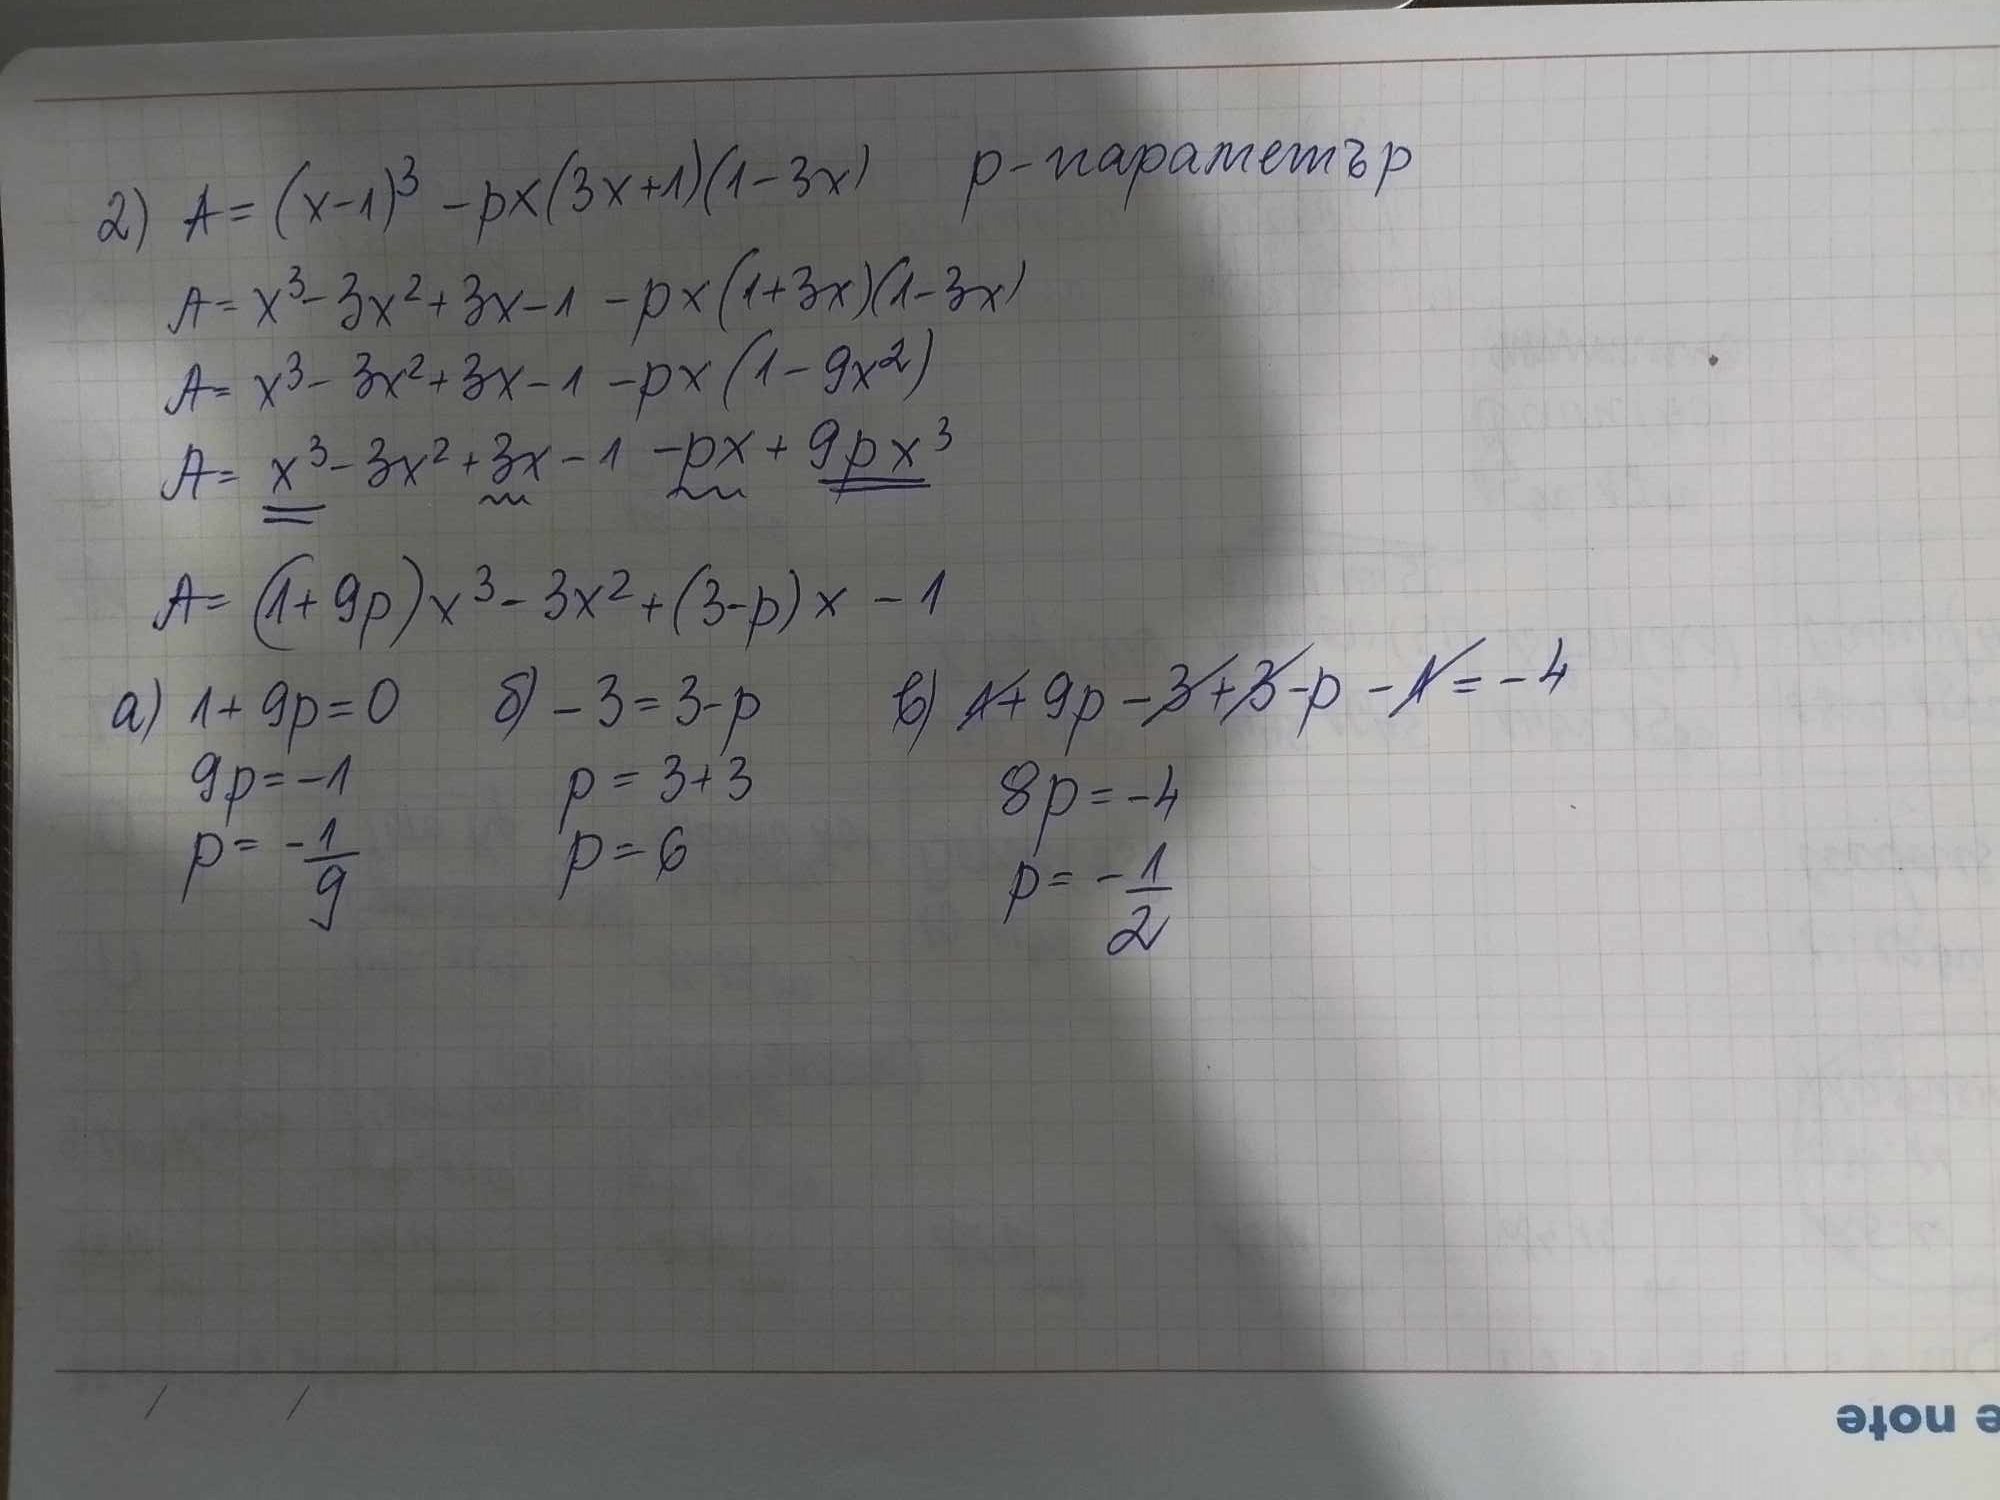 2) A = (x-1)³ - px(3x+1)(1-3x) p-параметър
A = x³ - 3x² + 3x - 1 - px(1+3x)(1-3x)
A = x³ - 3x² + 3x - 1 - px(1 - 9x²)
A = x³ - 3x² + 3x - 1 - px + 9px³
A = (1+9p)x³ - 3x² + (3-p)x - 1
а) 1 + 9p = 0 б) - 3 = 3 - p в) 1 + 9p - 3 + 3 - p - 1 = - 4
9p = -1 p = 3 + 3 8p = -4
p = -1/9 p = 6 p = -1/2
e note